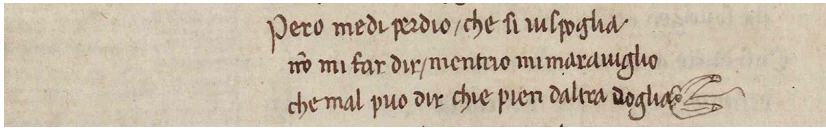 Pero medi perdio / che si uisfoglia.
nō mi far dir / mentrio mi marauiglio
che mal puo dir chie pien daltra doglia